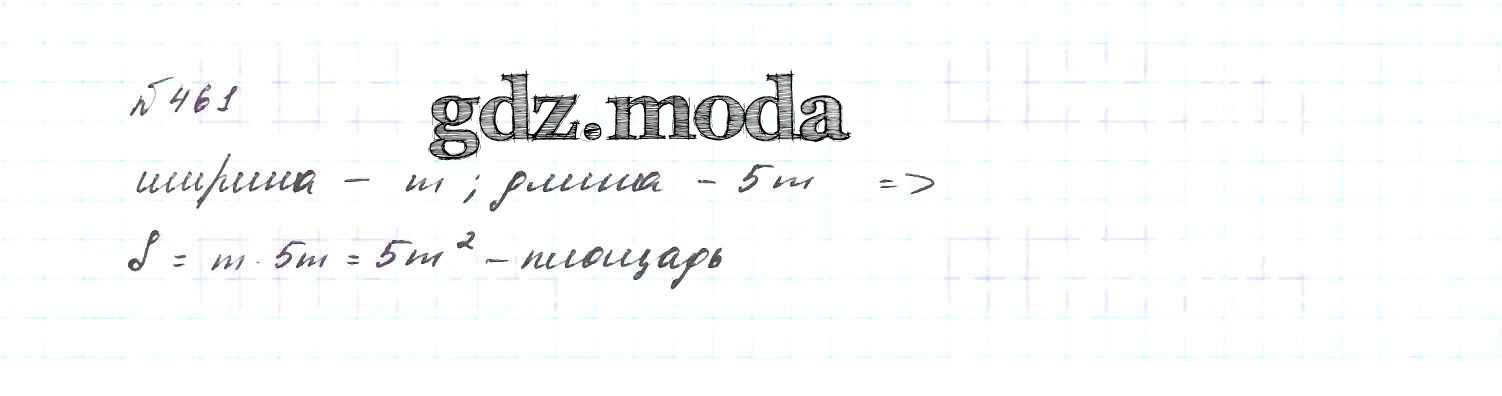 № 461
gdz.moda
ширина – m ; длина – 5m =>
S = m · 5m = 5m² – площадь